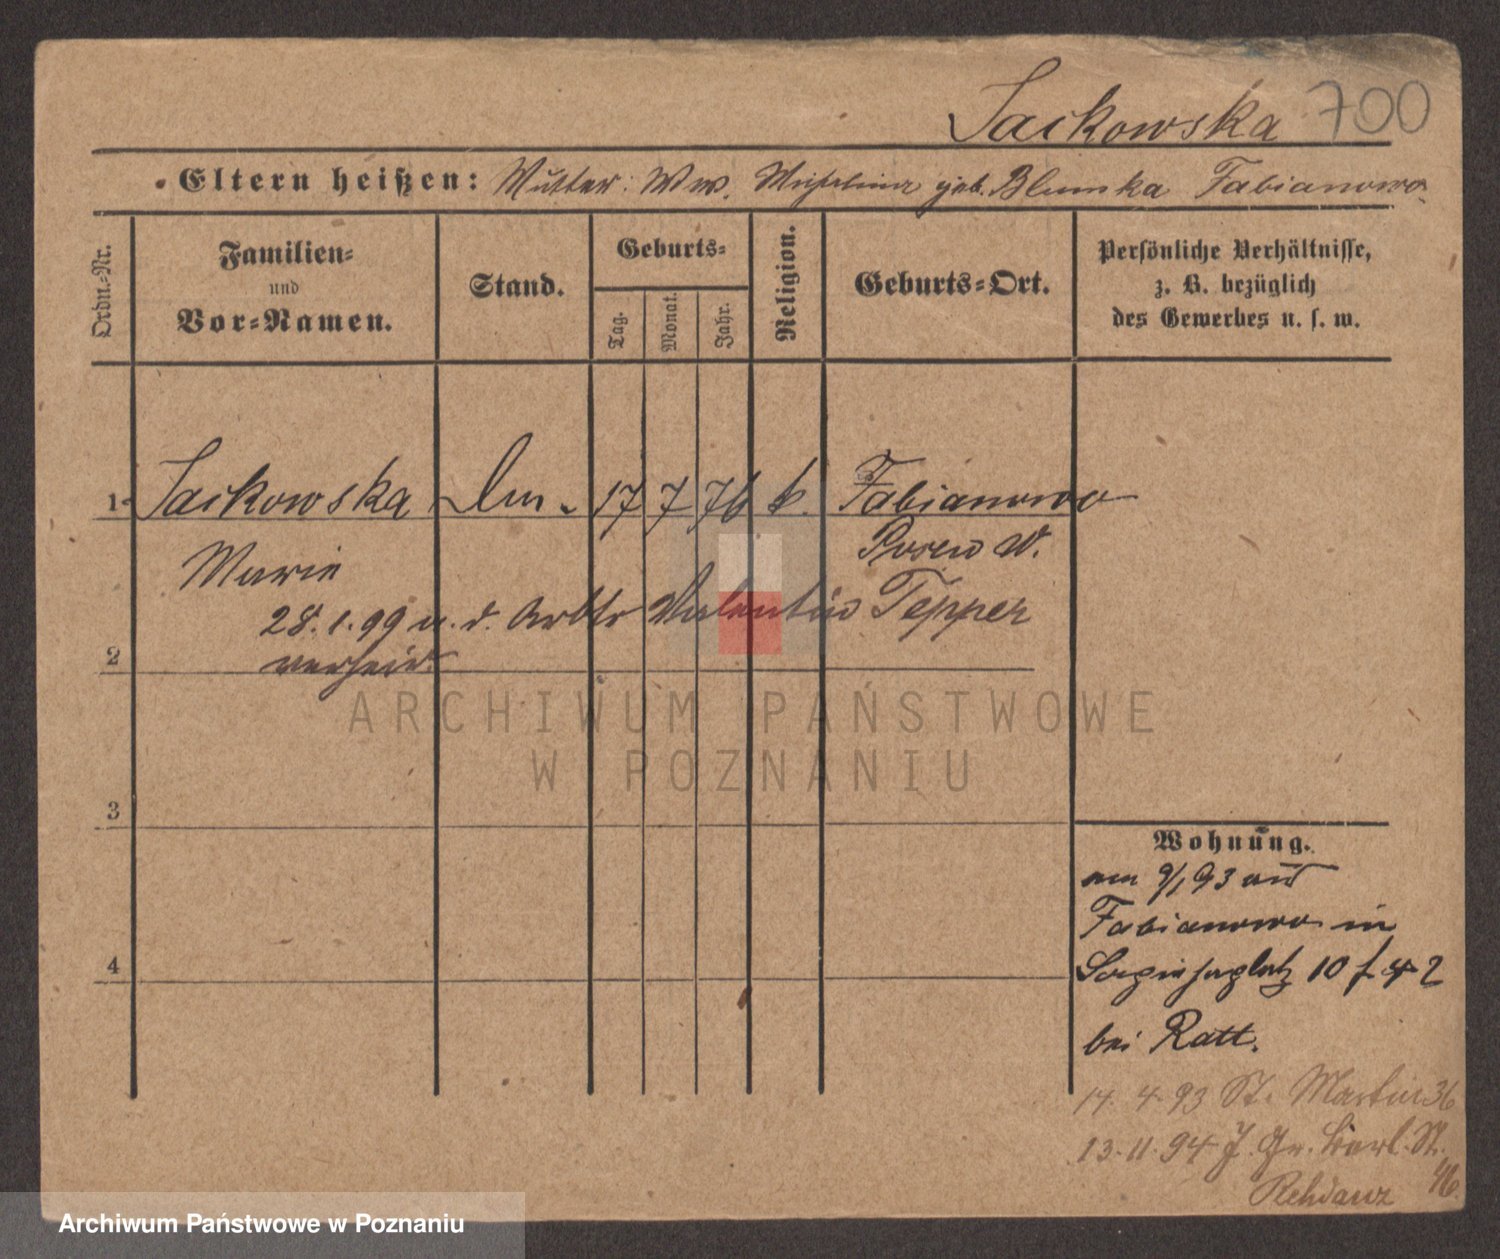 Sackowska 700
Eltern heißen: Mutter: Ww. Michalina geb. Blumka Fabianowo
Ordn.-Nr.
Familien-
und
Vor-Namen.
Stand.
Geburts-
Tag.
Monat.
Jahr.
Religion.
Geburts-Ort.
Persönliche Verhältnisse,
z. B. bezüglich
des Gewerbes u. s. w.
1 Sackowska 17 7 76 k. Fabianowo
Marie Posen W.
28.1.99 m. d. Arbtr Valentin Tepper
2 verheir.
3
4
Wohnung.
am 9/1 93 aus
Fabianowo in
Sapiehaplatz 10
bei Ratt.
14. 4. 93 St. Martin 36
13. 11. 94 Gr. St.
46
Rehdanz
ARCHIWUM PAŃSTWOWE
W POZNANIU
Archiwum Państwowe w Poznaniu